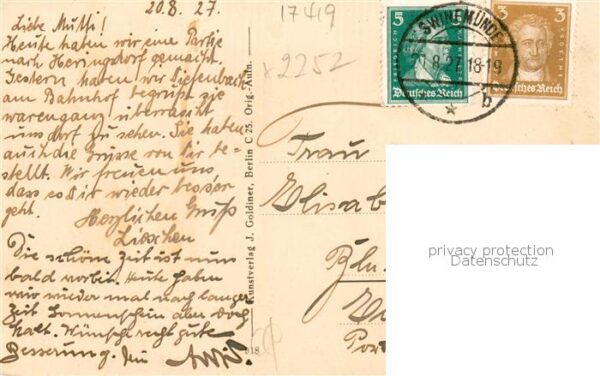 20.8.27.
Liebe Mutti!
Heute haben wir eine Partie
nach Heringsdorf gemacht.
Gestern haben wir
am Bahnhof begrüßt sie
waren ganz überrascht
uns dort zu sehen. Sie haben
auch die Grüsse von dir be-
stellt. Wir freuen uns,
dass es dir wieder besser
geht.
Herzlichen Gruß
Lieschen
Die schöne Zeit ist nun
bald vorbei. Heute haben
wir wieder mal nach langer
Zeit Sonnenschein aber doch
kalt. Wünsche recht gute
Besserung. dein
17419
x2252
Kunstverlag J. Goldiner, Berlin C 25. Orig.-Aufn.
818
5
FRIEDRICH
Deutsches Reich
3
GOETHE
Deutsches Reich
SWINEMÜNDE
8.27.18-19
* b
Frau
Elisab
Bln.
Por
privacy protection
Datenschutz